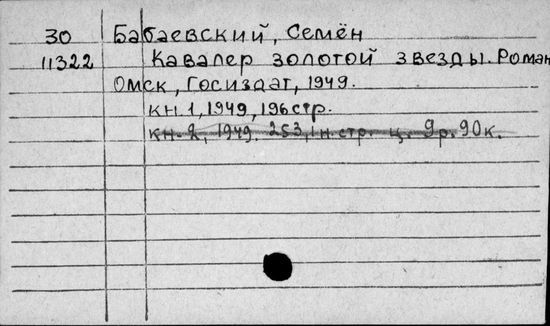 30 Бабаевский, Семён
11322 Кавалер золотой звезды. Роман
Омск, Госиздат, 1949.
кн. 1, 1949, 196 стр.
кн. 2, 1949. 253, 1 н. стр. ц. 9 р. 90 к.